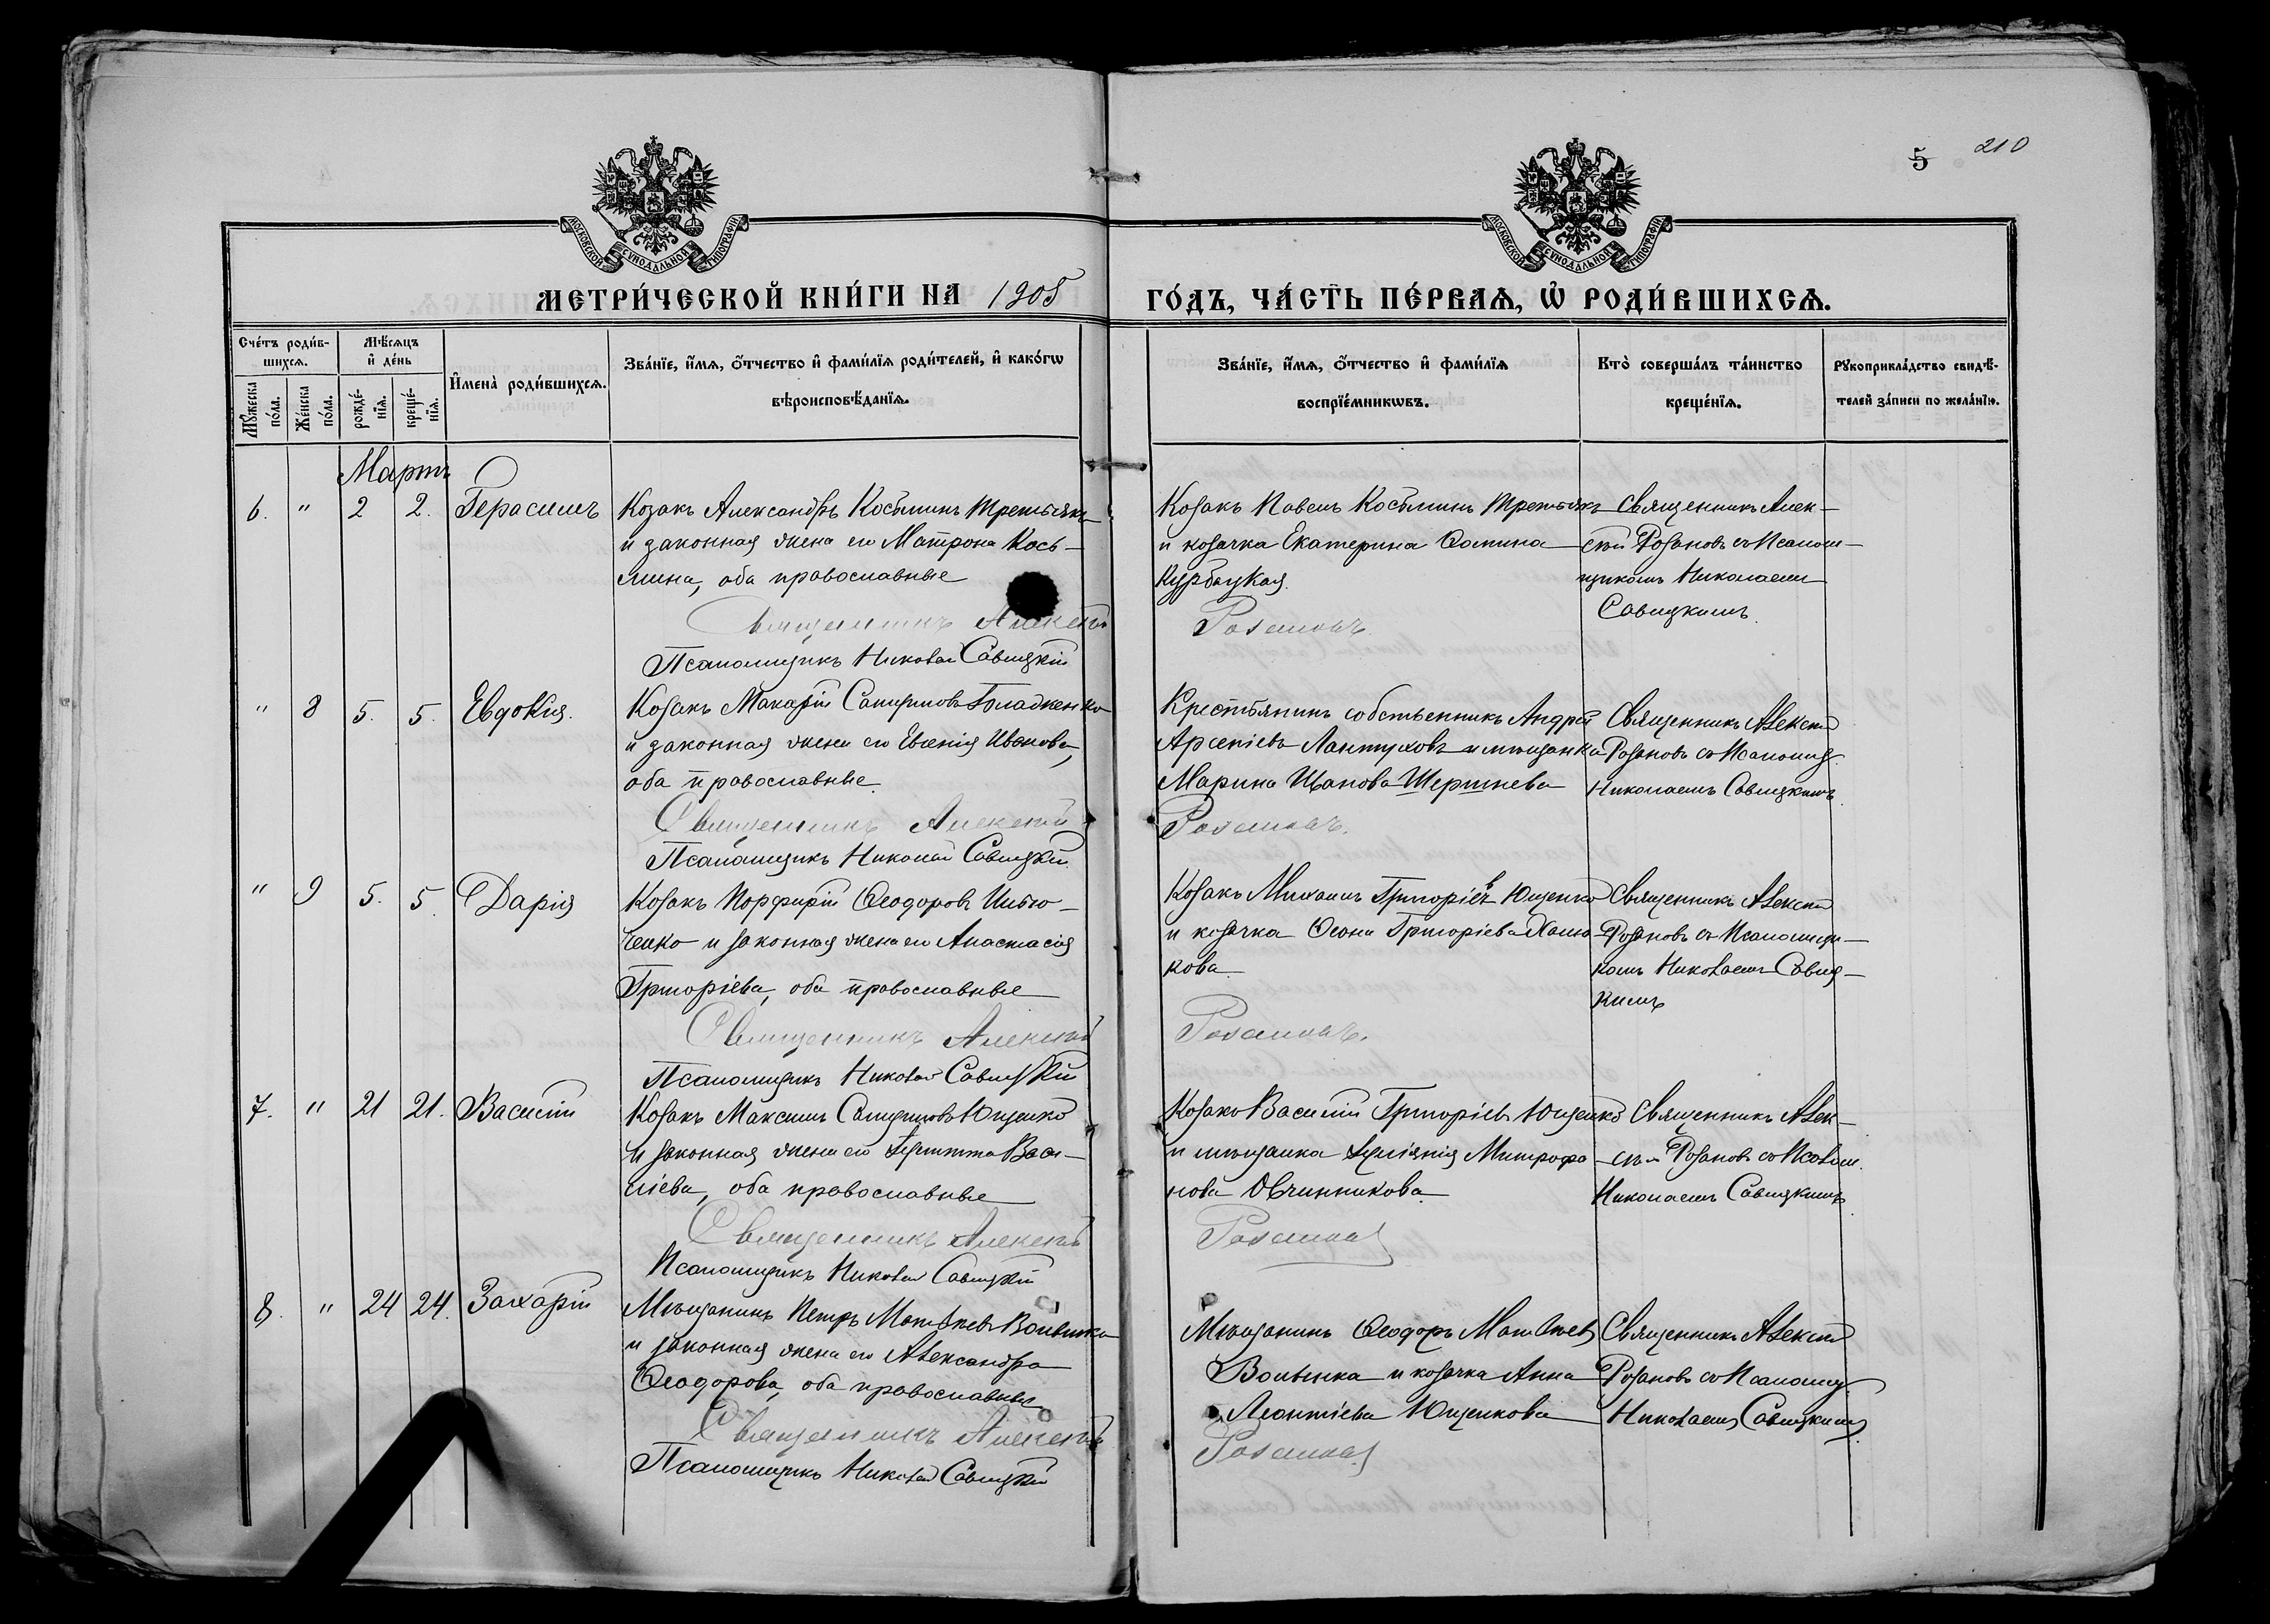 5 210
МОСКОВСКОЙ СѴНОДАЛЬНОЙ ТИПОГРАФІИ
МОСКОВСКОЙ СѴНОДАЛЬНОЙ ТИПОГРАФІИ
МЕТРИ́ЧЕСКОЙ КНИ́ГИ НА 1905 ГО́ДЪ, ЧА́СТЬ ПЕ́РВАѦ, Ѡ҆ РОДИ́ВШИХСѦ.
Сче́тъ роди́в-
шихсѧ.
Мꙋжеска по́ла.
Же́нска по́ла.
Мѣ́сѧцъ
и҆ де́нь
рожде́-
нїѧ.
креще́-
нїѧ.
И҆мена̀ роди́вшихсѧ.
Зва́нїе, и҆́мѧ, ѻ҆́тчество и҆ фами́лїѧ роди́телей, и҆ како́гѡ
вѣроисповѣ́данїѧ.
Зва́нїе, и҆́мѧ, ѻ҆́тчество и҆ фами́лїѧ
воспрїе́мникѡвъ.
Кто̀ соверша́лъ та́инство
креще́нїѧ.
Рꙋкоприкла́дство свидѣ́-
телей за́писи по жела́нїю.
Мартъ
6. " 2 2. Герасимъ
Козакъ Александръ Косьминъ Третьякъ
и законная жена его Матрона Кось-
мина, оба православные
Священникъ Алексѣй
Псаломщикъ Николай Савицкій
Козакъ Павелъ Косьминъ Третьякъ
и козачка Екатерина Ѳомина
Курбацкая.
Розановъ.
Священникъ Алек-
сѣй Розановъ съ Псалом-
щикомъ Николаемъ
Савицкимъ.
" 8 5. 5. Евдокія.
Козакъ Макарій Гладченко
и законная жена его Евгенія Иванова,
оба православные.
Священникъ Алексѣй
Псаломщикъ Николай Савицкій
Крестьянинъ собственникъ Андрей
Арсеніевъ Лантуховъ и мѣщанка
Марина Иванова Шершнева
Розановъ.
Священникъ Алексѣй
Розановъ съ Псаломщ.
Николаемъ Савицкимъ.
" 9 5. 5. Дарія
Козакъ Порфирій Ѳеодоровъ
и законная жена его Анастасія
Григоріева, оба православные
Священникъ Алексѣй
Псаломщикъ Николай Савицкій
Козакъ Михаилъ Григоріевъ Ющенко
и козачка Григоріева
кова
Розановъ.
Священникъ Алексѣй
Розановъ съ Псаломщи-
комъ Николаемъ Савиц-
кимъ
7. " 21 21. Василій
Козакъ Максимъ Ющенко
и законная жена его Васи-
ліева, оба православные
Священникъ Алексѣй
Псаломщикъ Николай Савицкій
Козакъ Василій Григоріевъ Ющенко
и мѣщанка Митрофа-
нова Овчинникова
Розановъ
Священникъ Алек-
сѣй Розановъ съ Псалом.
Николаемъ Савицкимъ.
8. " 24 24. Захарій
Мѣщанинъ Петръ Матвѣевъ Волынка
и законная жена его Александра
Ѳеодорова, оба православные
Священникъ Алексѣй
Псаломщикъ Николай Савицкій
Мѣщанинъ Ѳеодоръ Матвѣевъ
Волынка и козачка Анна
Леонтіева Ющенкова
Розановъ
Священникъ Алексѣй
Розановъ съ Псаломщ.
Николаемъ Савицкимъ.